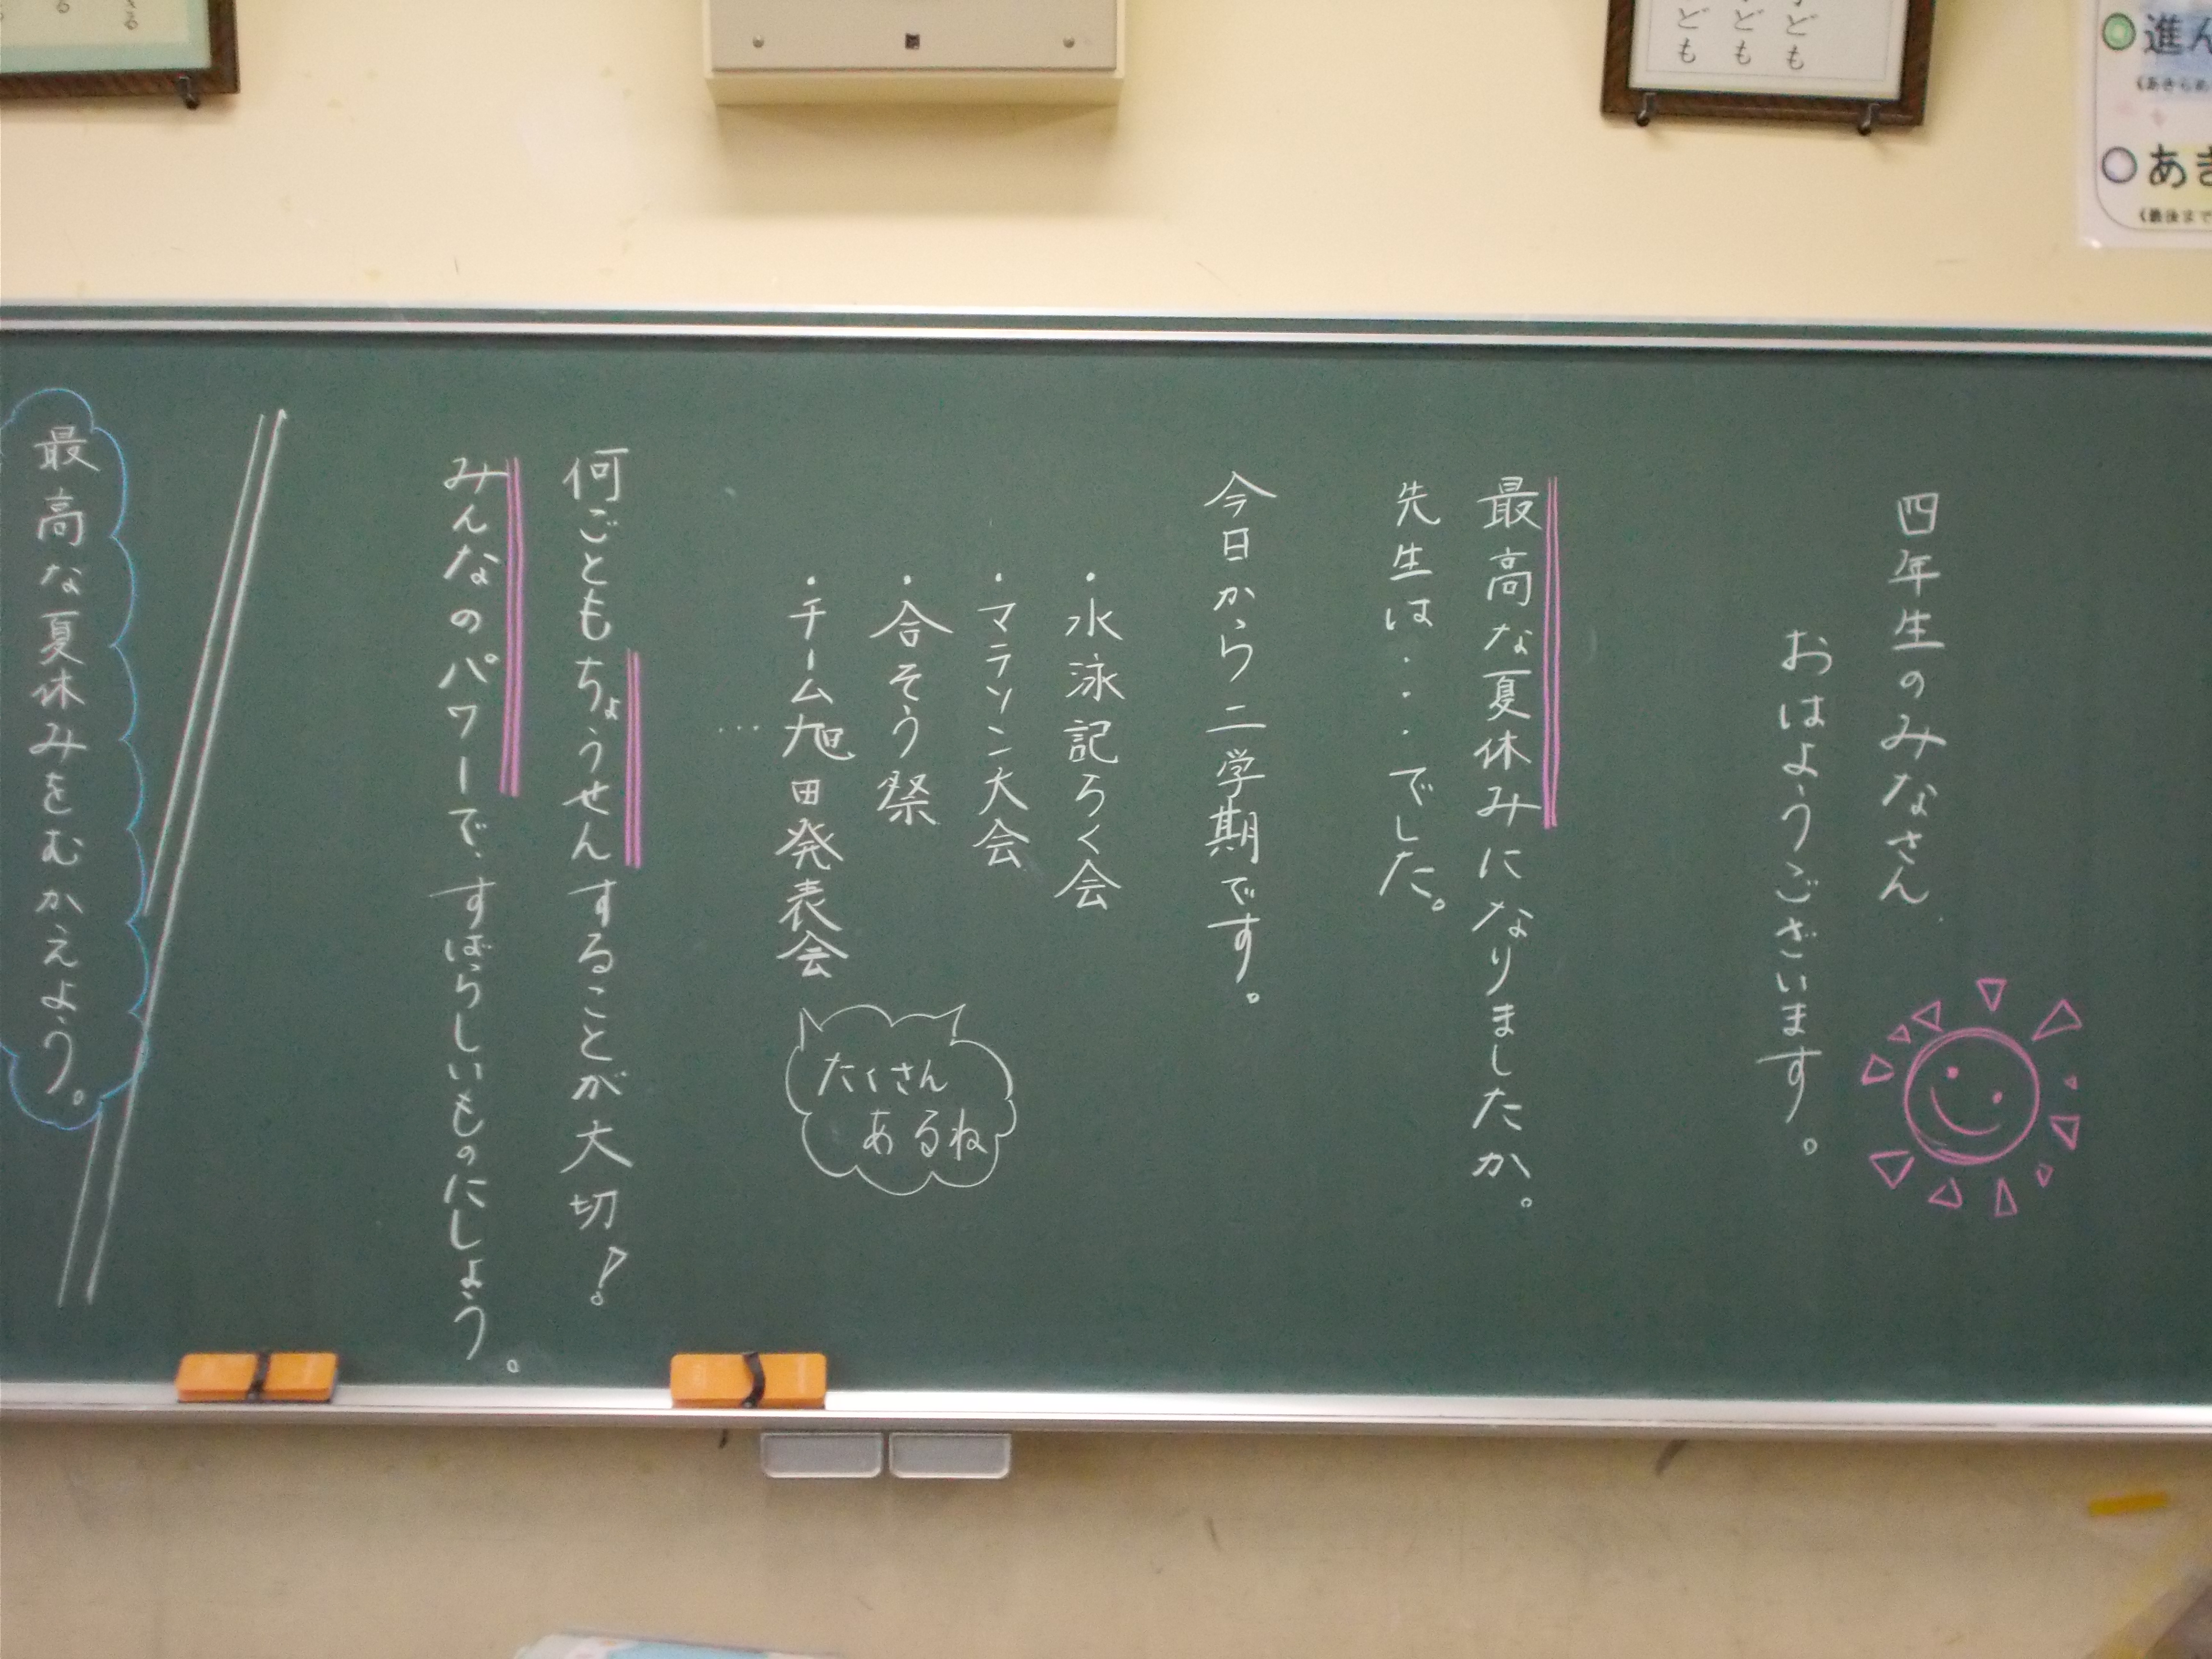 四年生のみなさん
おはようございます。
最高な夏休みになりましたか。
先生は・・・でした。
今日から二学期です。
・水泳記ろく会
・マラソン大会
・合そう祭
・チーム旭田発表会
…
たくさん
あるね
何ごともちょうせんすることが大切！
みんなのパワーで、すばらしいものにしよう。
最高な夏休みをむかえよう。
ども
ども
ども
進ん
《あきらめ
あき
《最後まで